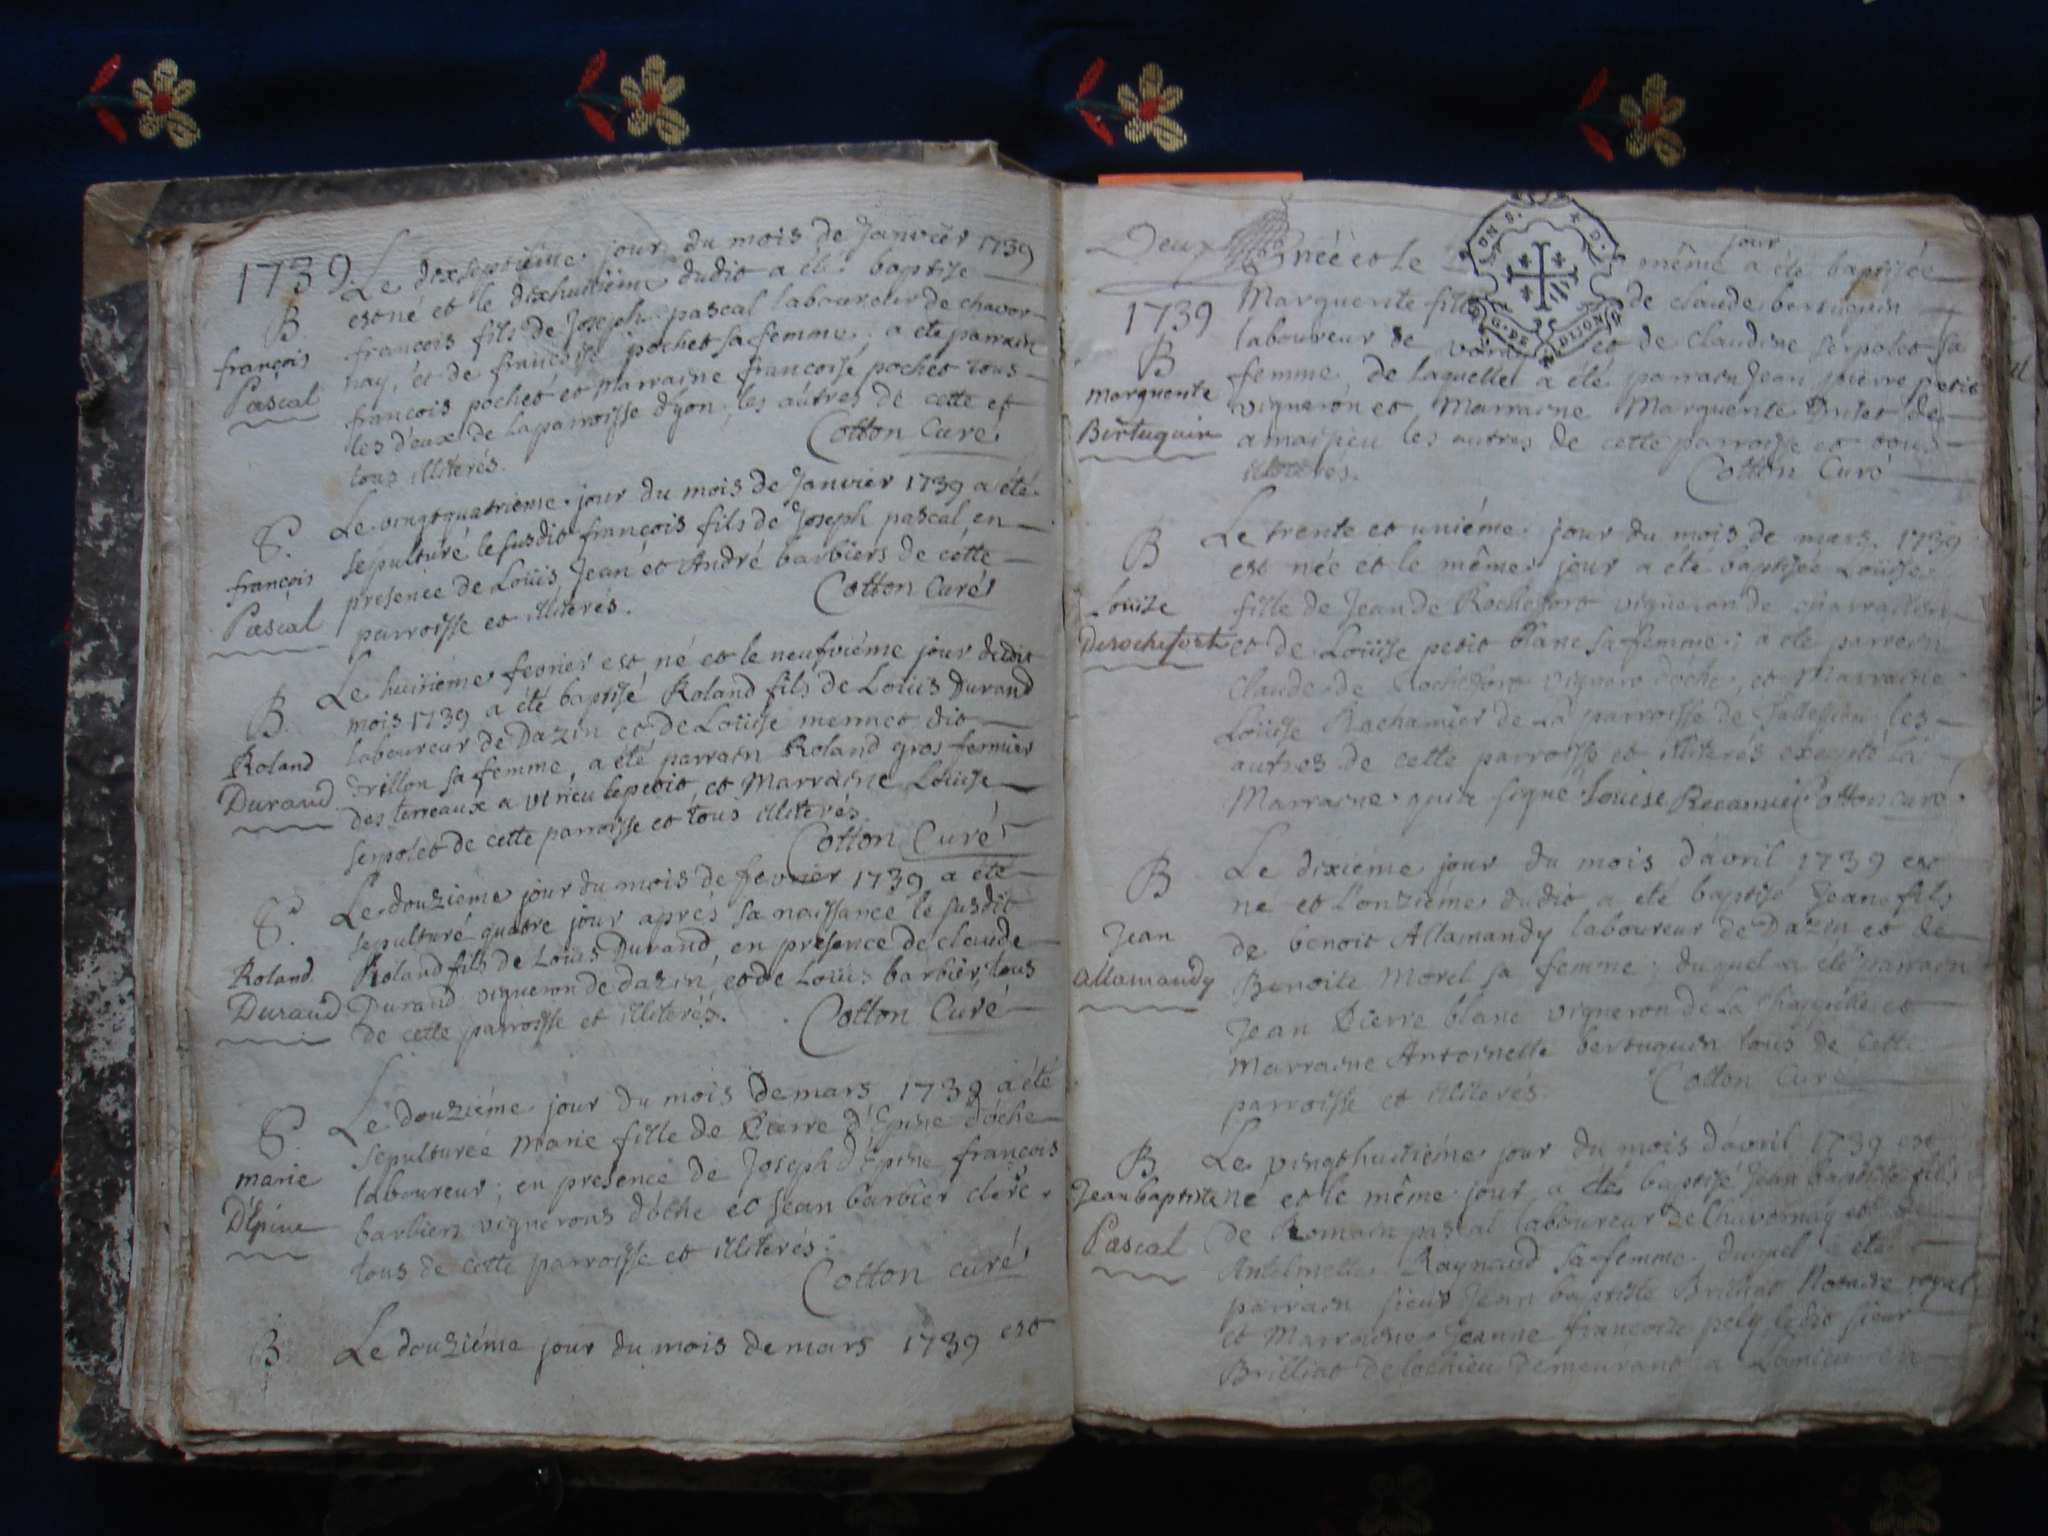 1739. Le dixseptiéme jour du mois de Janvier 1739
B est né et le dixhuitiéme dudit a été baptisé
françois fils de Joseph pascal laboureur de chavor-
françois nay, et de francoise pochet sa femme; a été parrain
Pascal francois pochet et marraine francoise pochet tous
les deux de la parroisse dyon, les autres de cette et
tous illiterés. Cotton Curé
Le vingtquatrieme jour du mois de Janvier 1739 a été
S. sepulturé le susdit françois fils de Joseph pascal en
françois presence de Loüis, Jean et André barbiers de cette
Pascal parroisse et illiterés. Cotton Curé
Le huitiéme fevrier est né et le neufviéme jour dudit
B. mois 1739 a été baptisé Roland fils de Loüis Durand
Roland laboureur de Dazin et de Loüise mennet dit
Durand drillon sa femme, a été parrain Roland gros fermier
des terreaux a virieu lepetit, et Marraine Loüise
serpolet de cette parroisse et tous illiterés.
Cotton Curé
Le douziéme jour du mois de fevrier 1739 a été
S. sepulturé quatre jour aprés sa naissance le susdit
Roland Roland fils de Loüis Durand, en presence de claude
Durand Durand vigneron de dazin, et de Loüis barbier, tous
de cette parroisse et illiterés. Cotton Curé
Le douziéme jour du mois de mars 1739 a été
S. sepulturée marie fille de Pierre d'Epine d'óche
marie laboureur; en presence de Joseph d'Epine, françois
D'Epine barbier vignerons d'óche et Jean barbier clerc,
tous de cette parroisse et illiterés.
Cotton curé
B Le douziéme jour du mois de mars 1739 est
Deux née et le jour même a été baptisée
1739 Marguerite fille de claude bertuquin
B laboureur de et de claudine serpolet sa
marguerite femme, de laquelle a été parrain Jean pierre petit
Bertuquin vigneron et Marraine Marguerite Drilet de
amaisieu les autres de cette parroisse et tous
illiterés. Cotton Curé
B Le trente et uniéme jour du mois de mars 1739
est née et le même jour a été baptisée Loüise
Loüise fille de Jean de Rochefort vigneron de
Derochefort et de Loüise petit blanc sa femme; a été parrain
claude de Rochefort vigneron d'óche, et Marraine
Loüise de la parroisse de les
autres de cette parroisse et illiterés excepté la
Marraine qui a signé Louise Recamier Cotton curé.
B Le dixiéme jour du mois d'avril 1739 est
né et l'onziéme dudit a été baptisé Jean fils
Jean de benoit Allamandy laboureur de Dazin et de
allamandy Benoite Morel sa femme; duquel a été parrain
Jean Pierre blanc vigneron de la Chapelle et
Marraine Antoinette bertuquin tous de cette
parroisse et illiterés. Cotton Curé
B Le vingthuitiéme jour du mois d'avril 1739 est
Jeanbaptiste né et le même jour a été baptisé Jean baptiste fils
Pascal de Romain pascal laboureur de Chavornay et de
Antelmette Raynaud sa femme, duquel a été
parrain sieur Jean baptiste Brillat Notaire royal
et Marraine Jeanne francoise ledit sieur
Brilliat de lochieu demeurant a